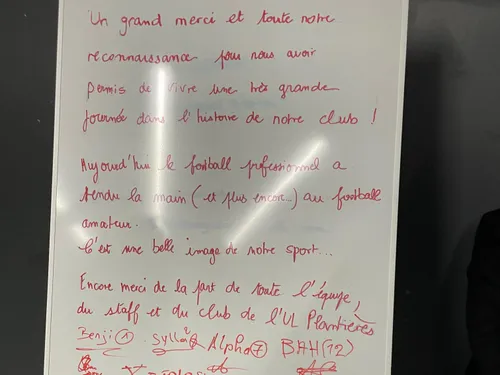 Un grand merci et toute notre
reconnaissance pour nous avoir
permis de vivre une très grande
journée dans l'histoire de notre club !
Aujourd'hui le football professionnel a
tendu la main (et plus encore..) au football
amateur.
C'est une belle image de notre sport...
Encore merci de la part de toute l'équipe,
du staff et du club de l'UL Plantières
Benji 1 Sylla Alpha 7 BAH (12)